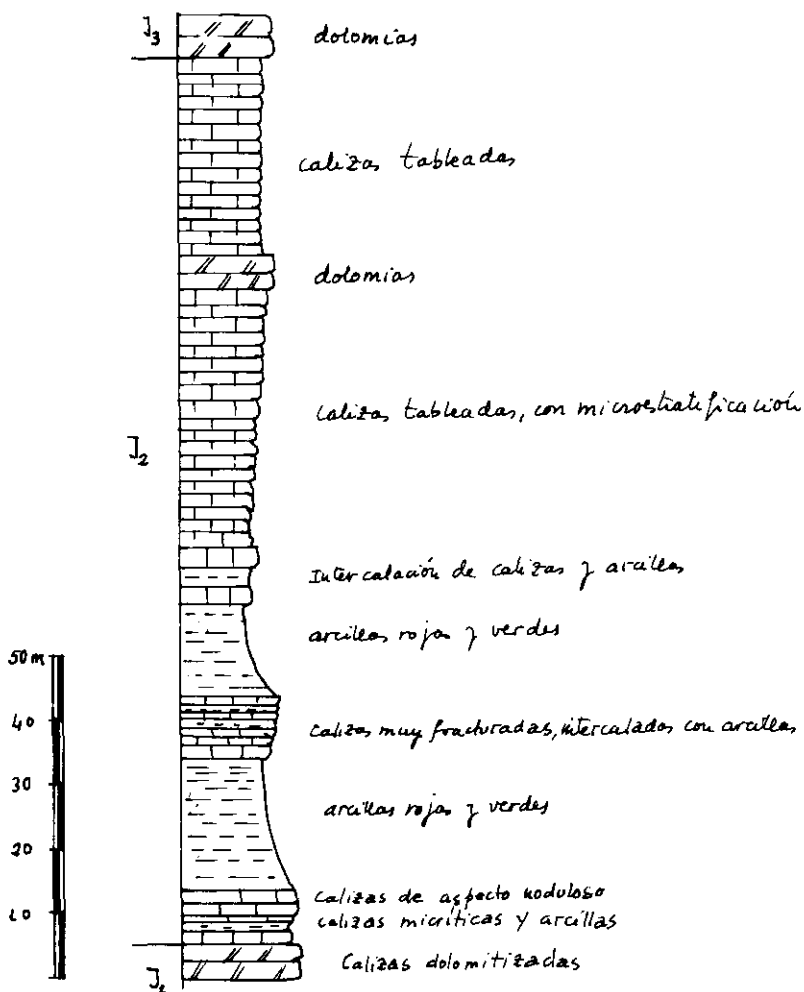 J₃
dolomías
calizas tableadas
dolomías
calizas tableadas, con microestratificación
J₂
Intercalación de calizas y arcillas
arcillas rojas y verdes
50 m
40
30
20
10
calizas muy fracturadas, intercaladas con arcillas
arcillas rojas y verdes
calizas de aspecto noduloso
calizas micríticas y arcillas
Calizas dolomitizadas